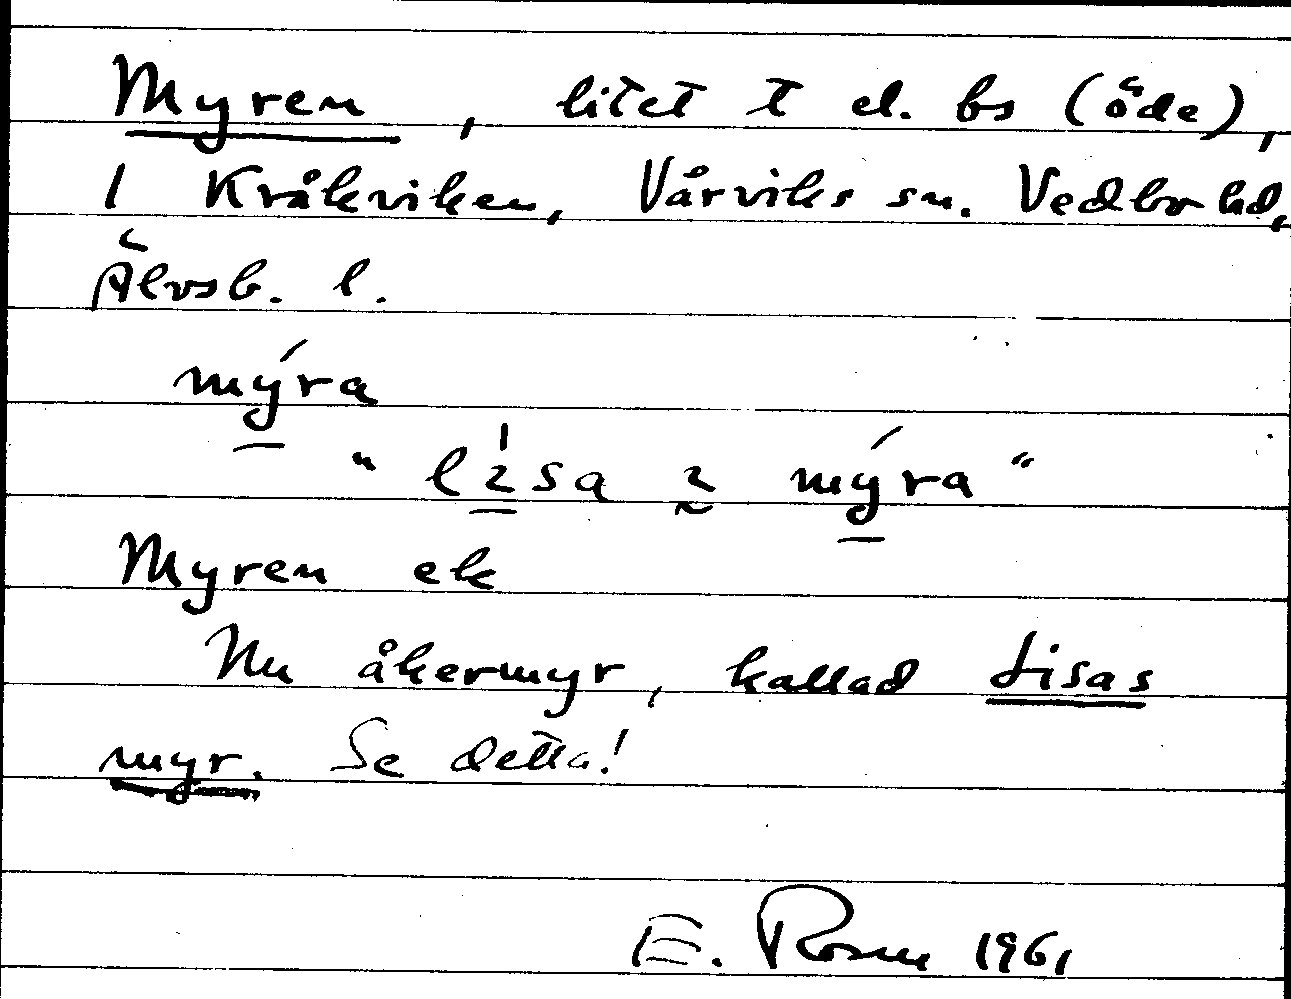 Myren, litet t el. bs (öde),
1 Kråkviken, Vårviks sn. Vedbo hd,
Älvsb. l.
mýra
"lɩ́sa ɩ mýra"
Myren ek
Nu åkermyr, kallad Lisas
myr. Se detta!
E. Rosen 1961